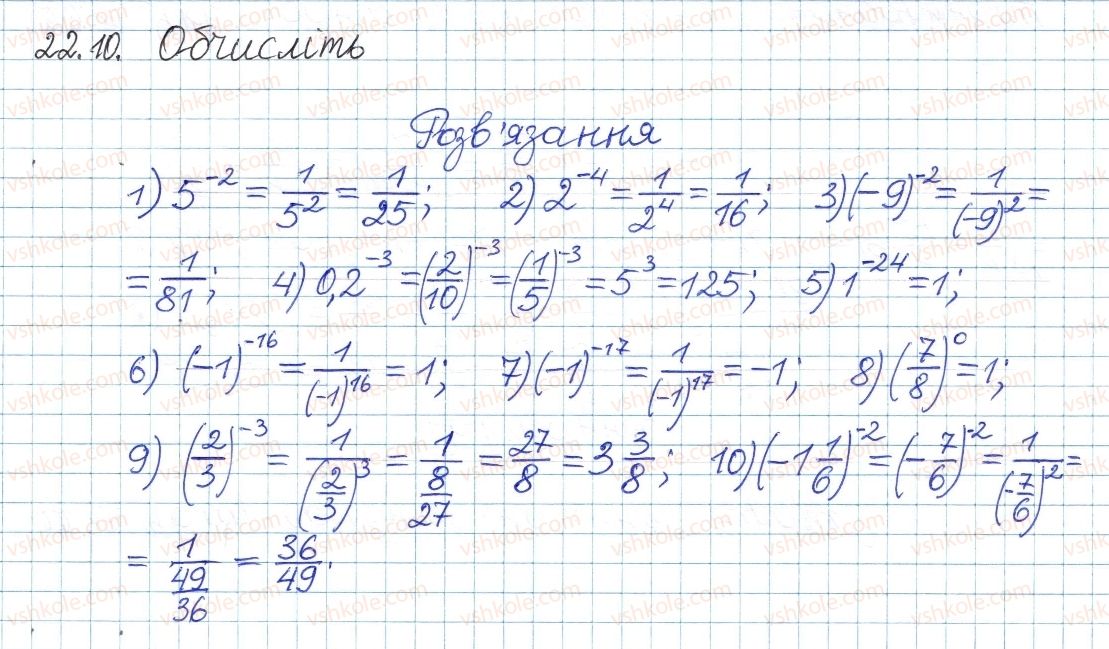 22.10. Обчисліть
Розв'язання
1) 5^{-2} = \frac{1}{5^2} = \frac{1}{25}; 2) 2^{-4} = \frac{1}{2^4} = \frac{1}{16}; 3) (-9)^{-2} = \frac{1}{(-9)^2} =
= \frac{1}{81}; 4) 0,2^{-3} = (\frac{2}{10})^{-3} = (\frac{1}{5})^{-3} = 5^3 = 125; 5) 1^{-24} = 1;
6) (-1)^{-16} = \frac{1}{(-1)^{16}} = 1; 7) (-1)^{-17} = \frac{1}{(-1)^{17}} = -1; 8) (\frac{7}{8})^0 = 1;
9) (\frac{2}{3})^{-3} = \frac{1}{(\frac{2}{3})^3} = \frac{1}{\frac{8}{27}} = \frac{27}{8} = 3\frac{3}{8}; 10) (-1\frac{1}{6})^{-2} = (-\frac{7}{6})^{-2} = \frac{1}{(-\frac{7}{6})^2} =
= \frac{1}{\frac{49}{36}} = \frac{36}{49}.